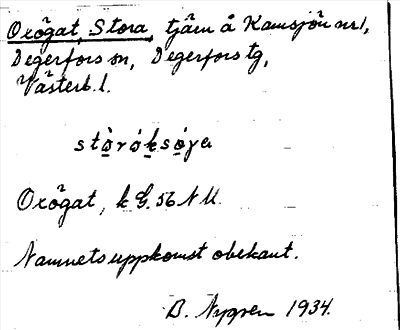 Oxögat, Stora, tjärn å Kamsjön nr 1,
Degerfors sn, Degerfors tg,
Västerb. l.
stòrók̲sø̲ga
Oxögat, k G. 56 N U.
Namnets uppkomst obekant.
B. Nygren 1934.